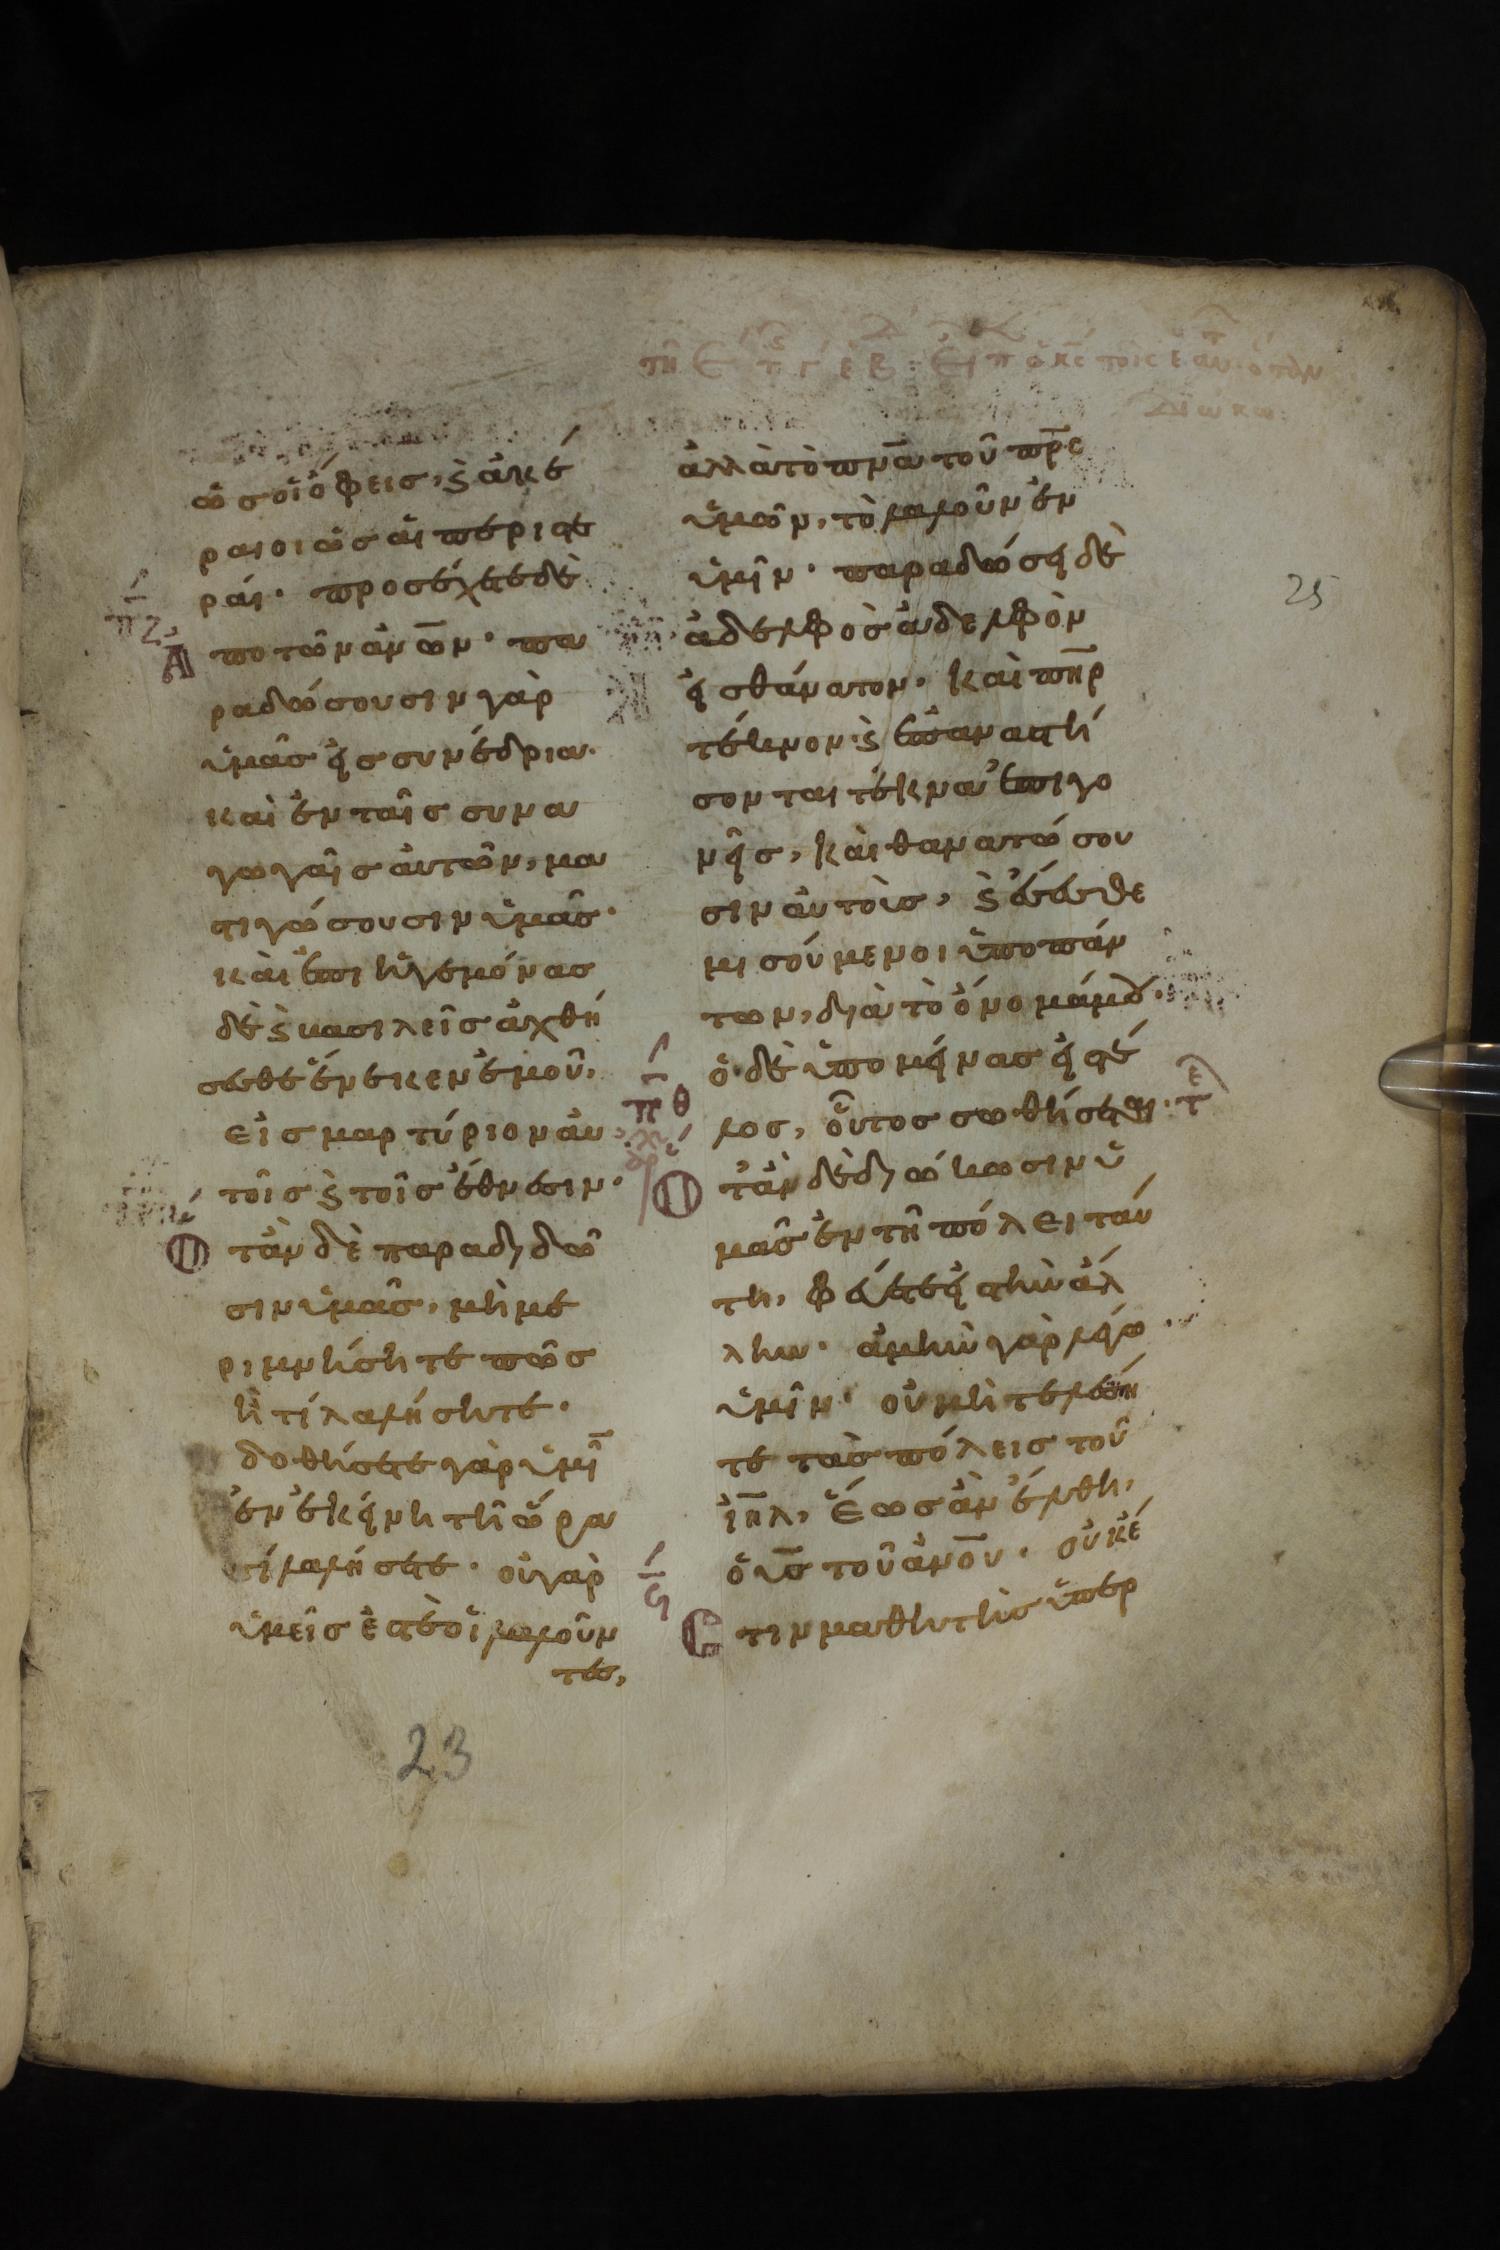 τῇ ε τ γ εβ: εἶπεν ὁ κς τοῖς ἑαυ· ὅταν
διωκω:
25
ὡς οἱ ὄφεις, ϗ ἀκέ
ραιοι ὡς αἱ περιστε
ραί· προσέχετε δὲ
πζ
ἀπο τῶν ἀνων· πα
ραδώσουσιν γὰρ
ὑμᾶς εἰς συνέδρια·
καὶ ἐν ταῖς συνα
γωγαῖς αὐτῶν, μα
στιγώσουσιν ὑμᾶς·
καὶ ἐπι ἡγεμόνας
δὲ ϗ βασιλεῖς ἀχθή
σεσθε ἕνεκεν ἐμοῦ,
εἰς μαρτύριον αὐ
τοῖς ϗ τοῖς ἔθνεσιν·
Ὅταν δὲ παραδιδῶ
σιν ὑμᾶς, μὴ με
ριμνήσητε πῶς
ἢ τί λαλήσητε·
δοθήσεται γὰρ ὑμῖ
ἐν ἐκείνη τῆ ὥρα
τί λαλήσετε· οὐ γὰρ
ὑμεῖς ἐστὲ οἱ λαλοῦν
τες,
ἀλλὰ τὸ πνα τοῦ πρς
ὑμῶν, τὸ λαλοῦν ἐν
ὑμῖν· παραδώσει δὲ
ἀδελφὸς ἀδελφὸν
εἰς θάνατον· καὶ πηρ
τέκνον· ϗ ἐπαναστή
σονται τέκνα ἐπι γο
νεῖς, καὶ θανατώσου
σιν αὐτοὺς, ϗ ἔσεσθε
μισούμενοι ὑπο πάν
των, διὰ τὸ ὄνομά μου·
ὁ δὲ ὑπομείνας εἰς τέ
λος, οὗτος σωθήσεται·
πθ
Ὅταν δὲ διώκωσιν ὑ
μᾶς ἐν τῇ πόλει ταύ
τη, φεύγετε εἰς τὴν ἄλ
λην· ἀμὴν γὰρ λέγω
ὑμῖν· οὐ μὴ τελέση
τε τὰς πόλεις τοῦ
ιηλ, ἕως ἂν ἔλθη,
ὁ υς τοῦ ἀνου· οὐκ ἔ
ϟ
Cτιν μαθητὴς ὑπερ
23